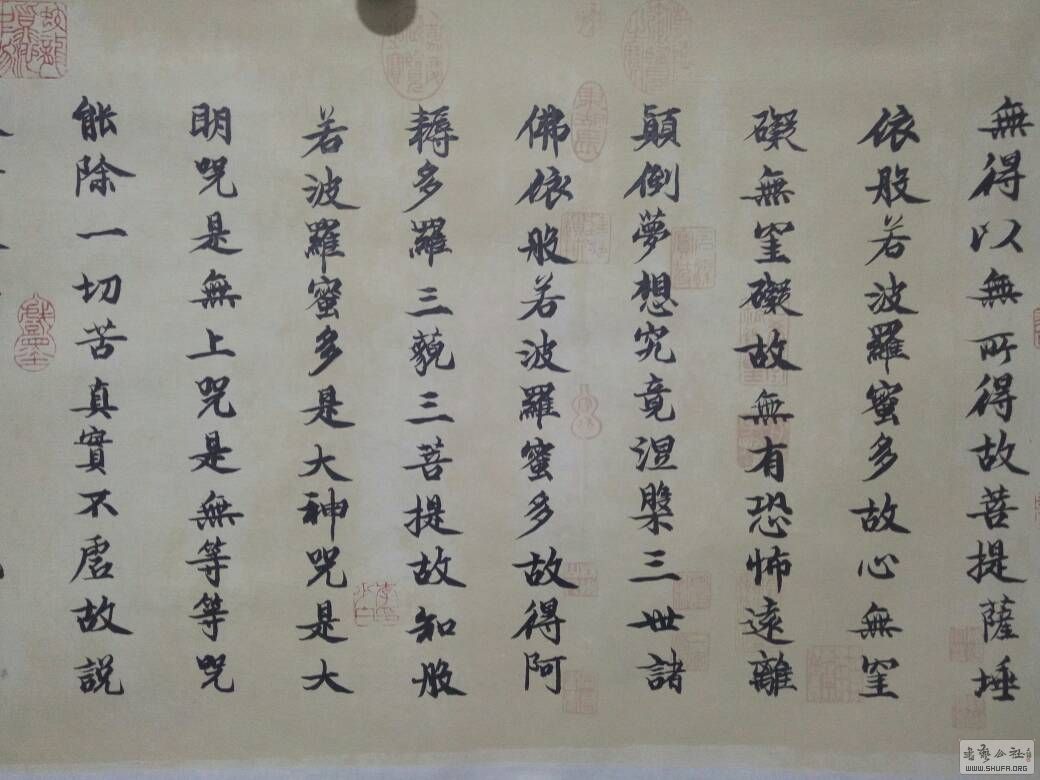 無得以無所得故菩提薩埵
依般若波羅蜜多故心無罣
礙無罣礙故無有恐怖遠離
顛倒夢想究竟涅槃三世諸
佛依般若波羅蜜多故得阿
耨多羅三藐三菩提故知般
若波羅蜜多是大神呪是大
明呪是無上呪是無等等呪
能除一切苦真實不虛故説
书艺公社
WWW.SHUFA.ORG